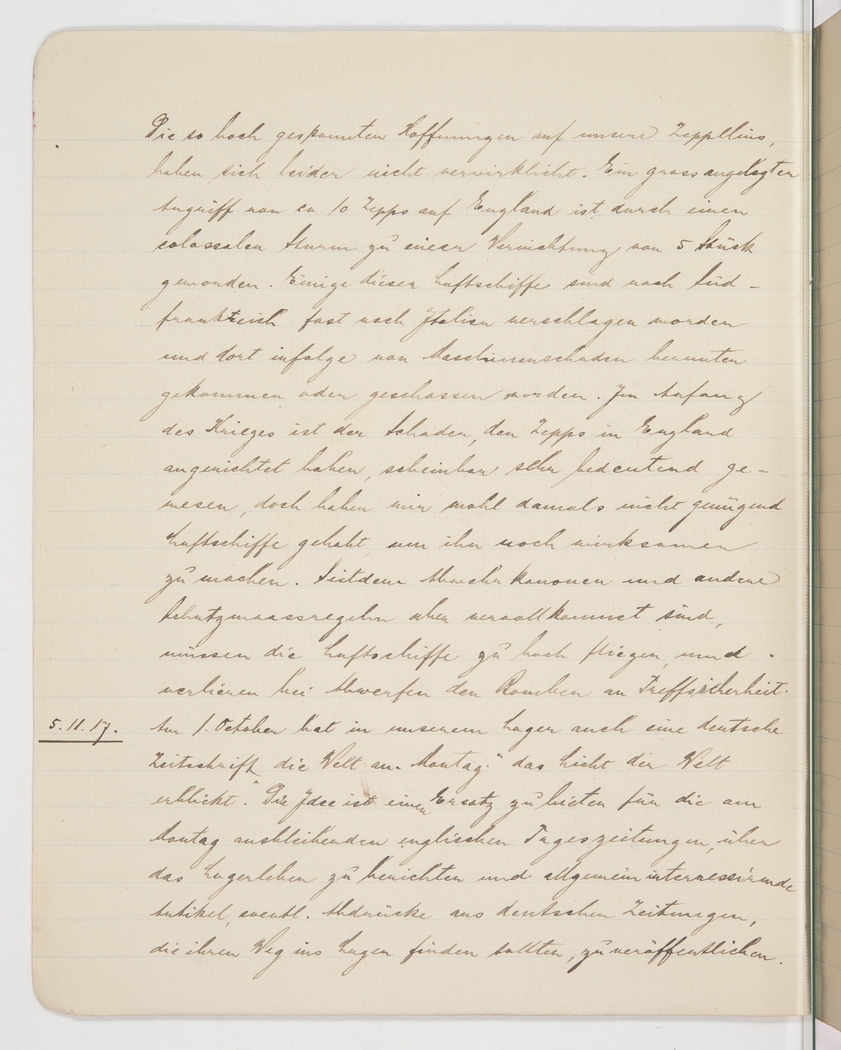 Die so hoch gespannten Hoffnungen auf unsere Zeppllins,
haben sich leider nicht verwirklicht. Ein gross angelegter
Angriff von ca 10 Zepps auf England ist durch einen
colossalen Sturm zu einer Vernichtung von 5 Stück
geworden. Einige dieser Luftschiffe sind nach Süd-
frankreich fast nach Italien verschlagen worden
und dort infolge von Maschinenschaden herunter
gekommen oder geschossen worden. Im Anfang
des Krieges ist der Schaden, den Zepps in England
angerichtet haben, scheinbar sehr bedeutend ge-
wesen, doch haben wir wohl damals nicht genügend
Luftschiffe gehabt um ihn noch wirksamer
zu machen. Seitdem Abwehrkanonen und andere
Schutzmaassregeln aber vervollkommnet sind,
müssen die Luftschiffe zu hoch fliegen und
verlieren bei Abwerfen der Bomben an Treffsicherheit.
5.11.17. Am 1. October hat in unserem Lager auch eine deutsche
Zeitschrift die Welt am Montag." das Licht der Welt
erblickt." Die Idee ist einen Ersatz zu bieten für die am
Montag ausbleibenden englischen Tageszeitungen, über
das Lagerleben zu berichten und allgemein interressirende
Artikel, eventl. Abdrücke aus deutschen Zeitungen,
die ihren Weg ins Lager finden sollten, zu veröffentlichen.